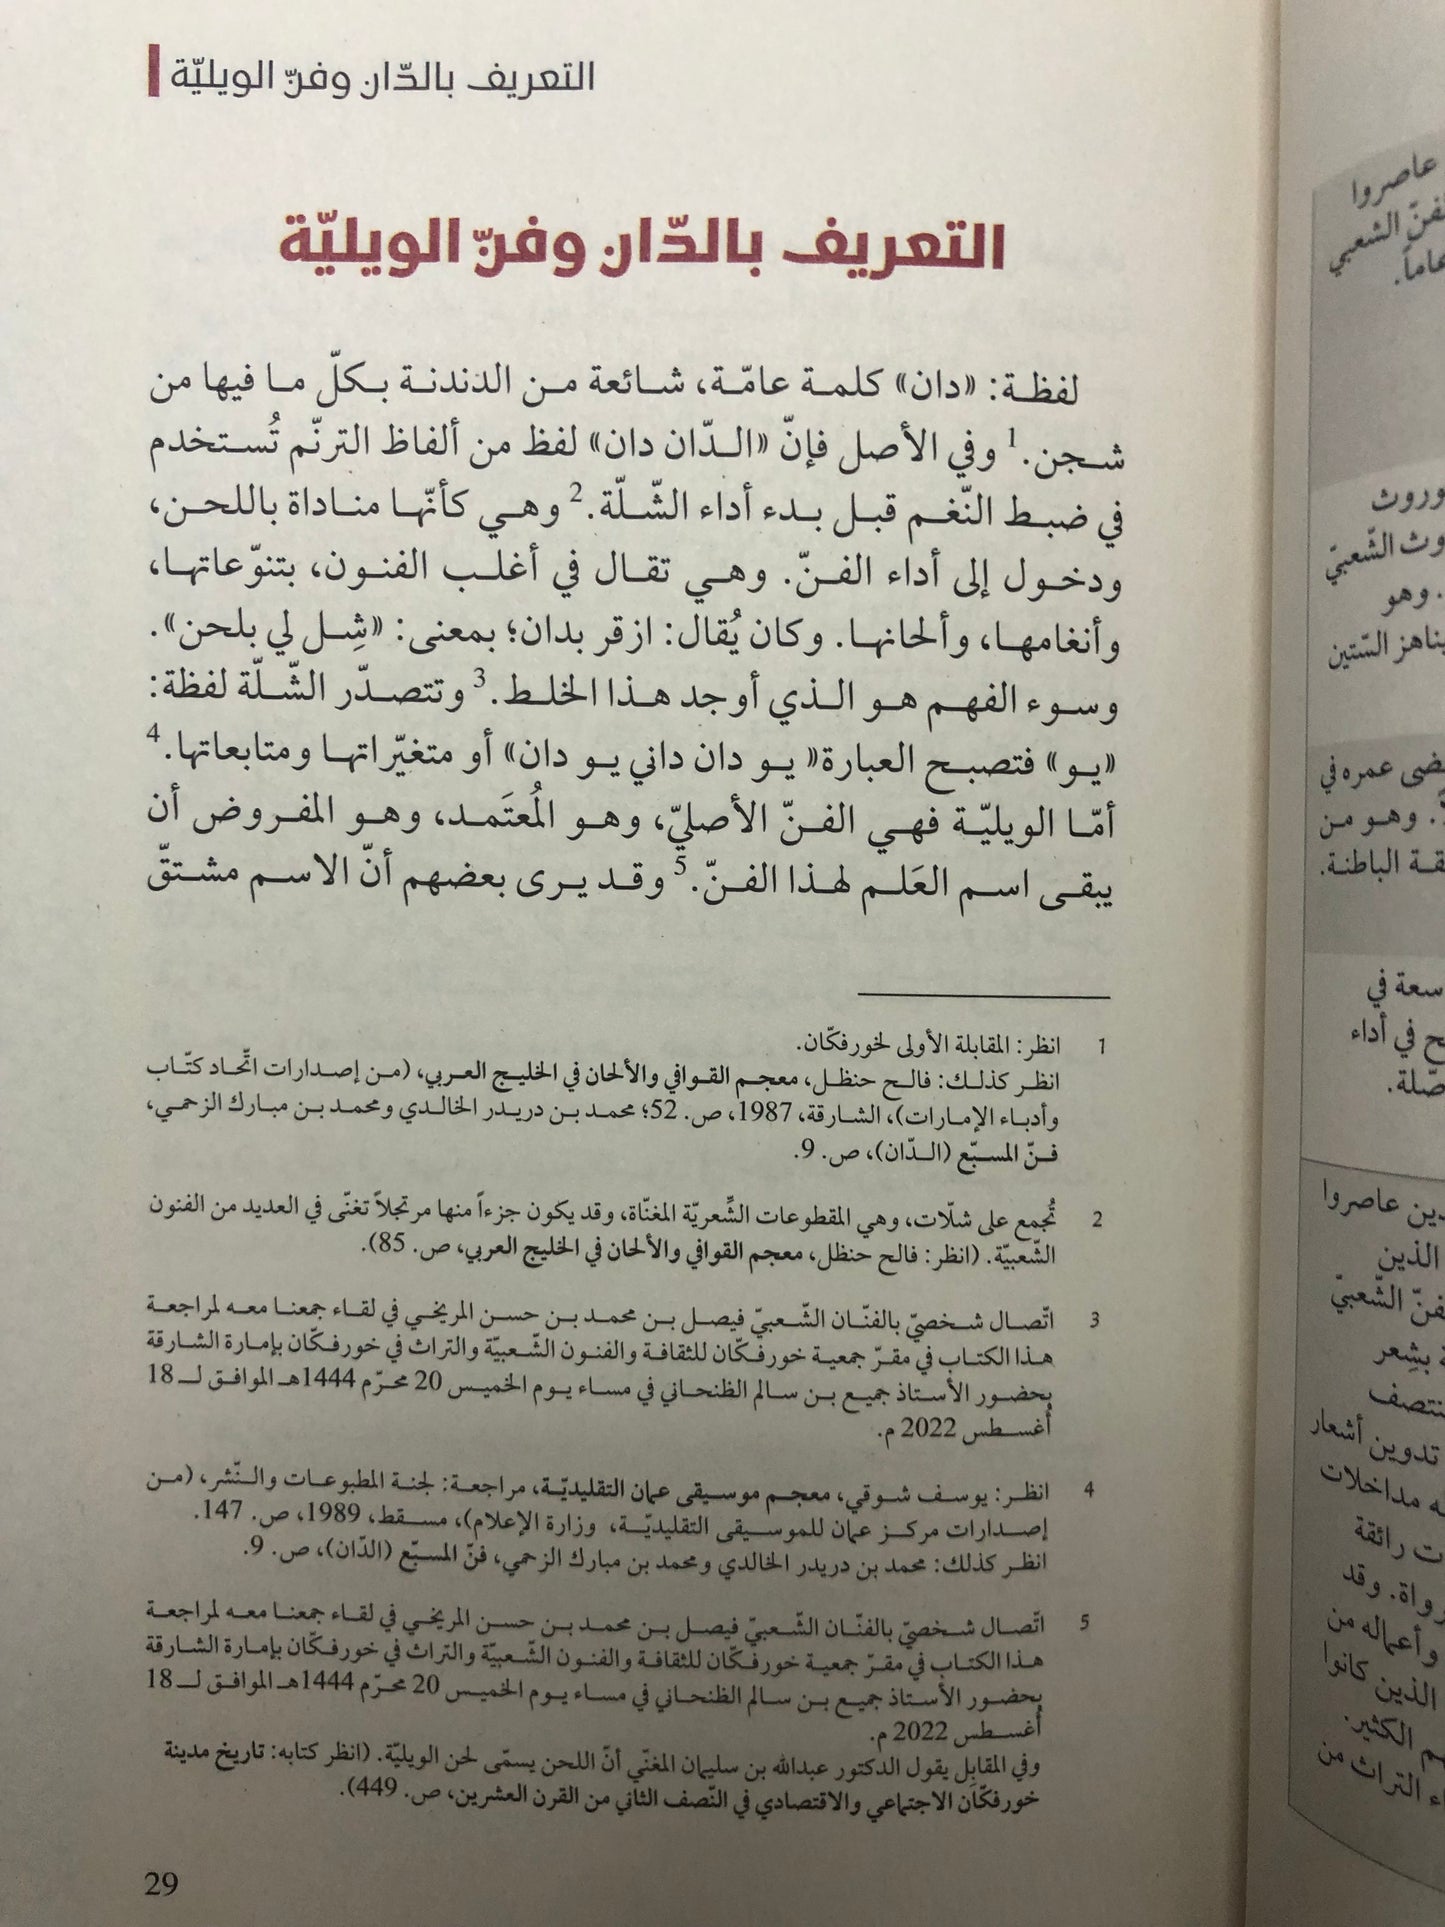 التعريف بالدّان وفنّ الويليّة
التعريف بالدّان وفنّ الويليّة
لفظة: «دان» كلمة عامّة، شائعة من الدندنة بكلّ ما فيها من
شجن.1 وفي الأصل فإنّ «الدّان دان» لفظ من ألفاظ الترنّم تُستخدم
في ضبط النّغم قبل بدء أداء الشّلّة.2 وهي كأنّها مناداة باللحن،
ودخول إلى أداء الفنّ. وهي تقال في أغلب الفنون، بتنوّعاتها،
وأنغامها، وألحانها. وكان يُقال: ازقر بدان؛ بمعنى: «شِل لي بلحن».
وسوء الفهم هو الذي أوجد هذا الخلط.3 وتتصدّر الشّلّة لفظة:
«يو» فتصبح العبارة« يو دان داني يو دان» أو متغيّراتها ومتابعاتها.4
أمّا الويليّة فهي الفنّ الأصليّ، وهو المُعتَمد، وهو المفروض أن
يبقى اسم العَلم لهذا الفنّ.5 وقد يرى بعضهم أنّ الاسم مشتقّ
1 انظر: المقابلة الأولى لخورفكّان.
انظر كذلك: فالح حنظل، معجم القوافي والألحان في الخليج العربي، (من إصدارات اتّحاد كتّاب
وأدباء الإمارات)، الشارقة، 1987، ص. 52؛ محمد بن دريدر الخالدي ومحمد بن مبارك الزحمي،
فنّ المسبّع (الدّان)، ص. 9.
2 تُجمع على شلّات، وهي المقطوعات الشِّعريّة المغنّاة، وقد يكون جزءاً منها مرتجلاً تغنّى في العديد من الفنون
الشّعبيّة. (انظر: فالح حنظل، معجم القوافي والألحان في الخليج العربي، ص. 85).
3 اتّصال شخصيّ بالفنّان الشّعبيّ فيصل بن محمد بن حسن المريخي في لقاء جمعنا معه لمراجعة
هذا الكتاب في مقرّ جمعية خورفكّان للثقافة والفنون الشّعبيّة والتراث في خورفكّان بإمارة الشارقة
بحضور الأستاذ جميع بن سالم الظنحاني في مساء يوم الخميس 20 محرّم 1444هـ الموافق لـ 18
أُغسطس 2022 م.
4 انظر: يوسف شوقي، معجم موسيقى عمان التقليديّة، مراجعة: لجنة المطبوعات والنّشر، (من
إصدارات مركز عمان للموسيقى التقليديّة، وزارة الإعلام)، مسقط، 1989، ص. 147.
انظر كذلك: محمد بن دريدر الخالدي ومحمد بن مبارك الزحمي، فنّ المسبّع (الدّان)، ص. 9.
5 اتّصال شخصيّ بالفنّان الشّعبيّ فيصل بن محمد بن حسن المريخي في لقاء جمعنا معه لمراجعة
هذا الكتاب في مقرّ جمعية خورفكّان للثقافة والفنون الشّعبيّة والتراث في خورفكّان بإمارة الشارقة
بحضور الأستاذ جميع بن سالم الظنحاني في مساء يوم الخميس 20 محرّم 1444هـ الموافق لـ 18
أُغسطس 2022 م.
وفي المقابِل يقول الدكتور عبدالله بن سليمان المغنّي أنّ اللحن يسمّى لحن الويليّة. (انظر كتابه: تاريخ مدينة
خورفكّان الاجتماعي والاقتصادي في النّصف الثاني من القرن العشرين، ص. 449).
29
عاصروا
الشعبي
عاماً.
الشّعبيّ
وهو
يناهز السّتين
عمره في
وهو من
الباطنة.
في
في أداء
عاصروا
الذين
الشّعبيّ
بشِعر
تدوين أشعار
مداخلات
رائقة
وقد
وأعماله من
الذين كانوا
الكثير.
التراث من